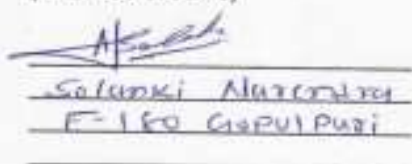 Solanki Narendra
F-180 Gopulpuri